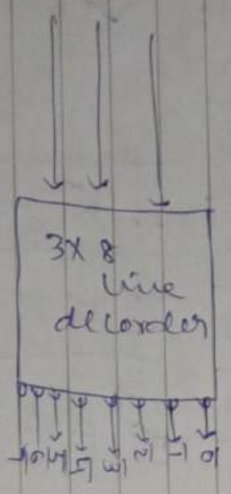 3X 8
line
decorder
7 6 5 4 3 2 1 0